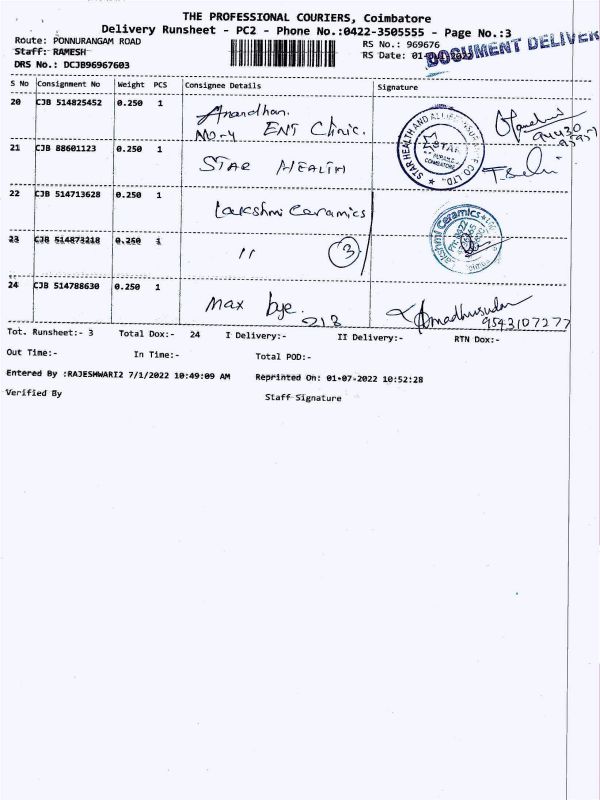 THE PROFESSIONAL COURIERS, Coimbatore
Delivery Runsheet - PC2 - Phone No.:0422-3505555 - Page No.:3
Route: PONNURANGAM ROAD
RS No.: 969676
Staff: RAMESH
RS Date: 01-
DOCUMENT DELIVER
DRS No.: DCJB96967603
S No Consignment No Weight PCS Consignee Details Signature
20 CJB 514825452 0.250 1 Anandhan.
ENT Clinic.
94430
21 CJB 88601123 0.250 1 STAR HEALTH
STAR HEALTH AND ALLIED CO LTD.
STAR
COIMBATORE
22 CJB 514713628 0.250 1 Lakshmi Ceramics
Lakshmi Ceramics
23 CJB 514873218 0.250 1 " 3
24 CJB 514788630 0.250 1 Max bye.
213
Amadhusudan
9543107277
Tot. Runsheet:- 3 Total Dox:- 24 I Delivery:- II Delivery:- RTN Dox:-
Out Time:- In Time:- Total POD:-
Entered By :RAJESHWARI2 7/1/2022 10:49:09 AM Reprinted On: 01-07-2022 10:52:28
Verified By Staff Signature